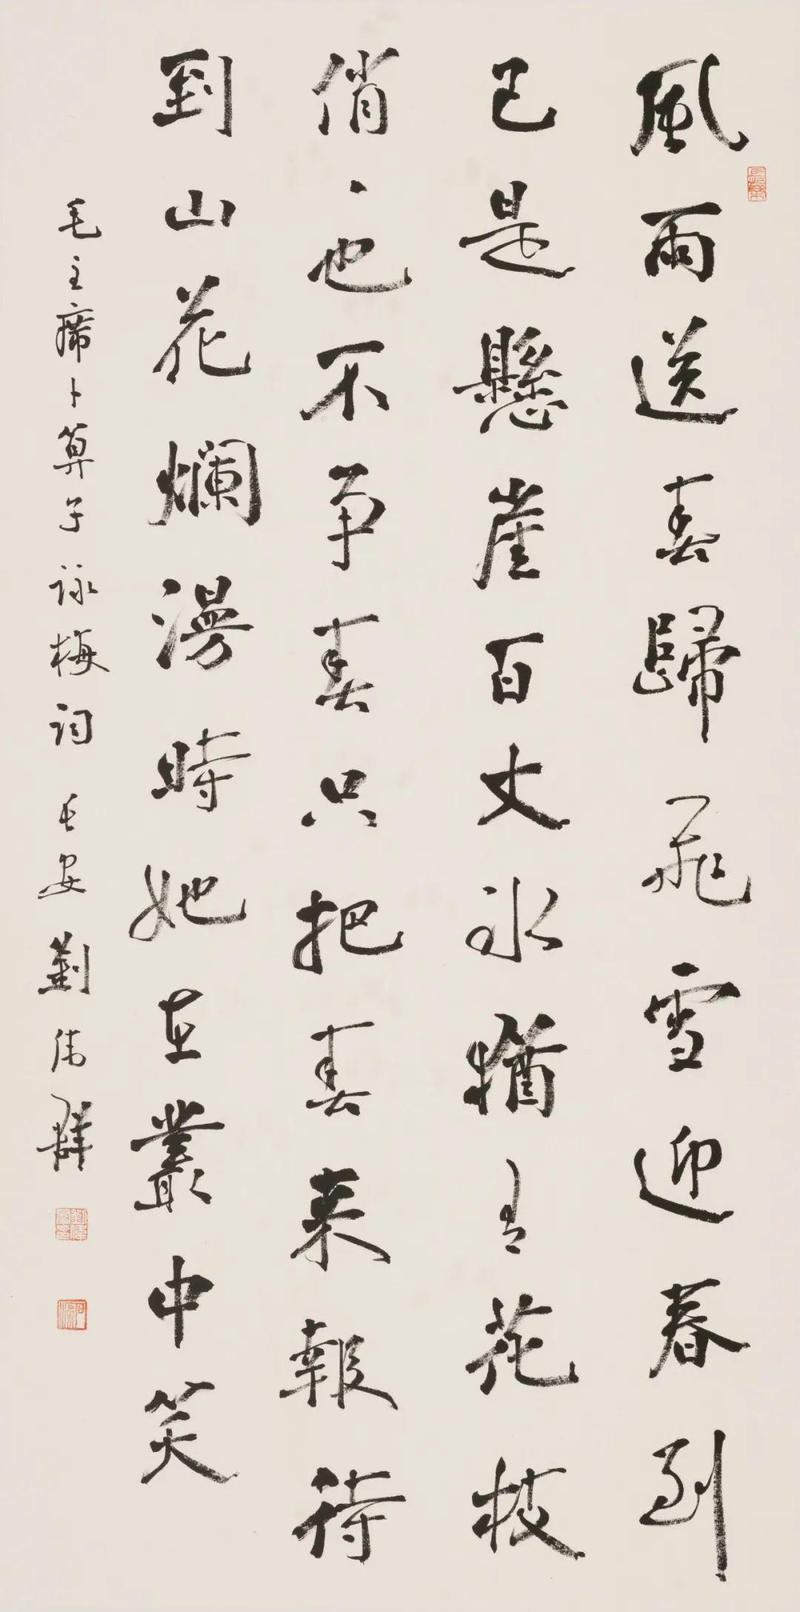 風雨送春歸飛雪迎春到
已是懸崖百丈冰猶有花枝
俏、也不争春只把春来報待
到山花爛漫時她在叢中笑
毛主席卜算子詠梅詞 長安劉偉群